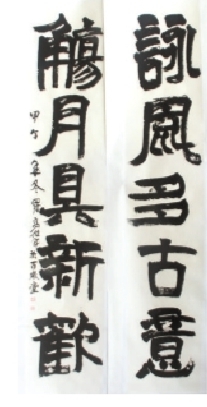 詠風多古意
觴月具新歡
甲午